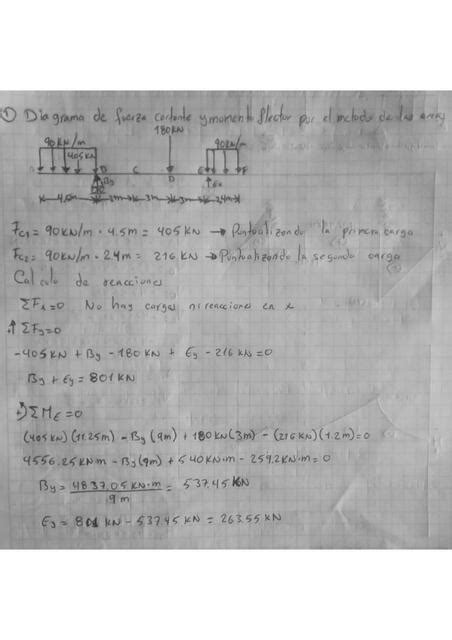 ① Diagrama de fuerza cortante y momento flector por el metodo de las areas
180KN
90KN/m 90KN/m
405KN
B By C D E Ey F
4,5m 3m 3m 3m 2,4m
Fc1 = 90KN/m · 4.5m = 405 KN → Puntualizando la primera carga
Fc2 = 90KN/m · 2.4m = 216 KN → Puntualizando la segunda carga
Calculo de reacciones
ΣFx=0 No hay cargas ni reacciones en x
+↑ ΣFy=0
-405KN + By - 180 KN + Ey - 216 KN = 0
By + Ey = 801 KN
+↻ ΣME = 0
(405 KN)(11.25m) - By (9m) + 180 KN(3m) - (216 KN)(1.2m)=0
4556.25KN·m - By(9m) + 540KN·m - 259.2KN·m = 0
By = 4837.05 KN·m / 9m = 537.45 KN
Ey = 801 KN - 537.45 KN = 263.55 KN